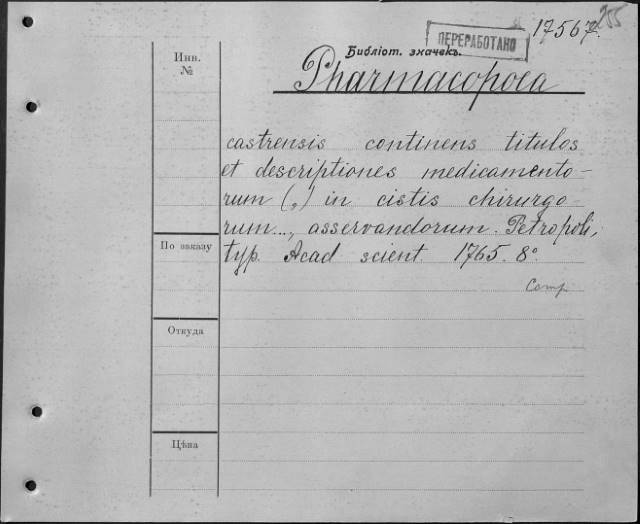 17567.
255
ПЕРЕРАБОТАНО
Инв.
№
Библіот. значекъ.
Pharmacopoea
castrensis continens titulos
et descriptiones medicamento-
rum (,) in cistis chirurgo-
rum..., asservandorum. Petropoli,
typ. Acad scient. 1765. 8°
По заказу
Comp
Откуда
Цѣна